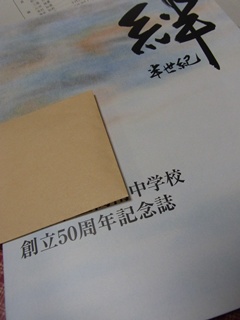 絆
半世紀
中学校
創立50周年記念誌